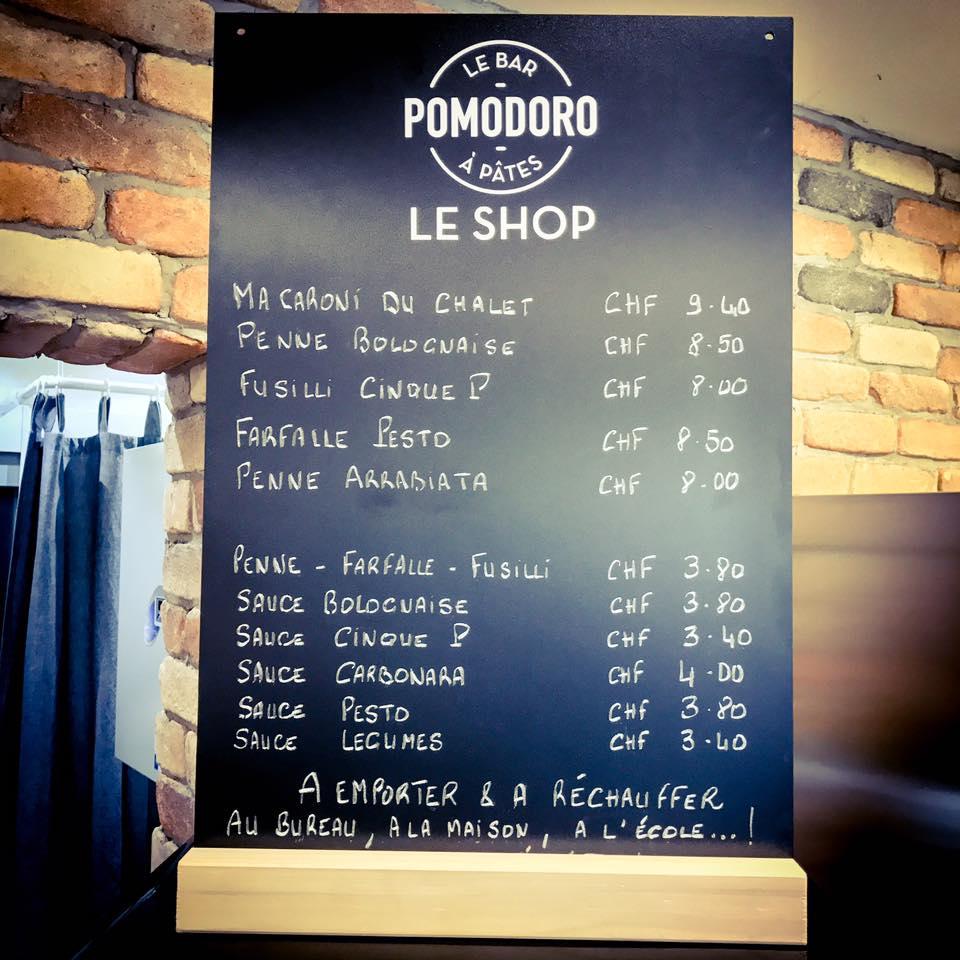 LE BAR
POMODORO
À PÂTES
LE SHOP
MACARONI DU CHALET CHF 9.40
PENNE BOLOGNAISE CHF 8.50
FUSILLI CINQUE P CHF 8.00
FARFALLE PESTO CHF 8.50
PENNE ARRABIATA CHF 8.00
PENNE - FARFALLE - FUSILLI CHF 3.80
SAUCE BOLOGNAISE CHF 3.80
SAUCE CINQUE P CHF 3.40
SAUCE CARBONARA CHF 4.00
SAUCE PESTO CHF 3.80
SAUCE LEGUMES CHF 3.40
A EMPORTER & A RÉCHAUFFER
AU BUREAU, A LA MAISON, A L'ÉCOLE...!